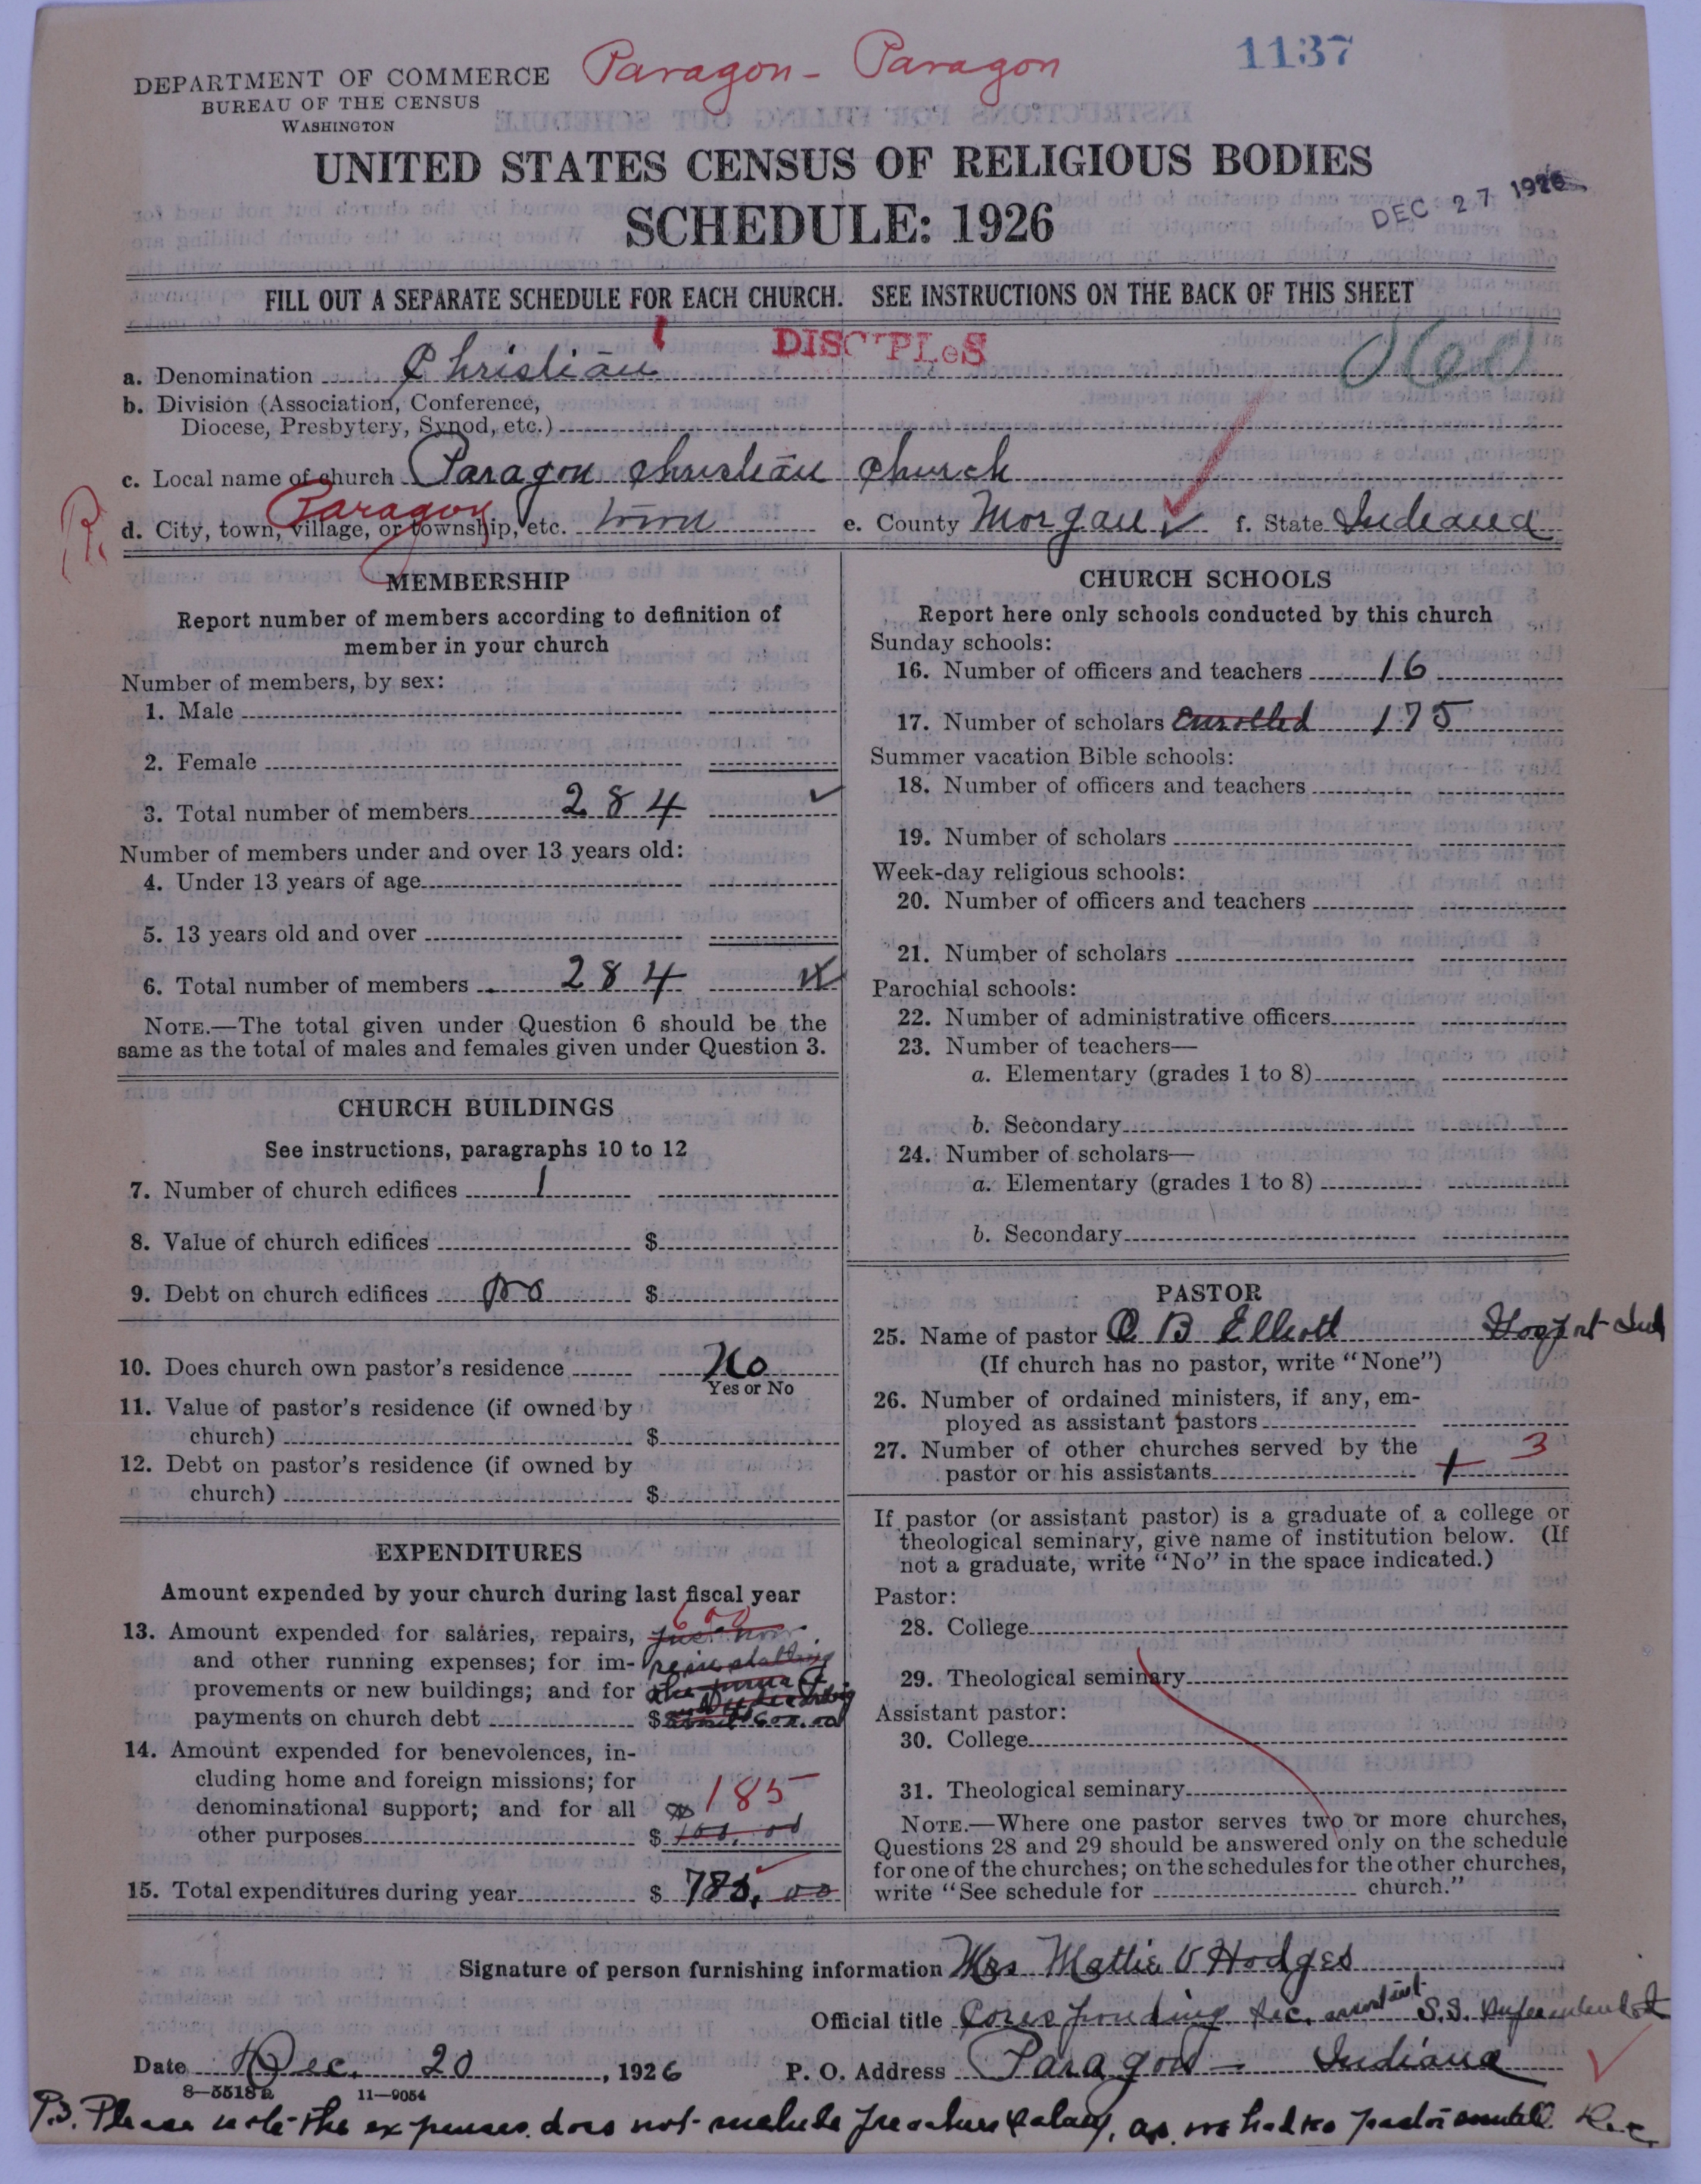 Paragon - Paragon
1137
DEPARTMENT OF COMMERCE
BUREAU OF THE CENSUS
WASHINGTON
UNITED STATES CENSUS OF RELIGIOUS BODIES
SCHEDULE: 1926
DEC 27 1926
FILL OUT A SEPARATE SCHEDULE FOR EACH CHURCH. SEE INSTRUCTIONS ON THE BACK OF THIS SHEET
DISCIPLeS
a. Denomination Christian
b. Division (Association, Conference,
Diocese, Presbytery, Synod, etc.)
c. Local name of church Paragon Christian Church
Paragon
d. City, town, village, or township, etc. town e. County Morgan f. State Indiana
MEMBERSHIP
Report number of members according to definition of
member in your church
Number of members, by sex:
1. Male
2. Female
3. Total number of members 284
Number of members under and over 13 years old:
4. Under 13 years of age
5. 13 years old and over
6. Total number of members 284
NOTE.—The total given under Question 6 should be the
same as the total of males and females given under Question 3.
CHURCH BUILDINGS
See instructions, paragraphs 10 to 12
7. Number of church edifices 1
8. Value of church edifices $
9. Debt on church edifices no $
10. Does church own pastor's residence No
Yes or No
11. Value of pastor's residence (if owned by
church) $
12. Debt on pastor's residence (if owned by
church) $
EXPENDITURES
Amount expended by your church during last fiscal year
600
13. Amount expended for salaries, repairs,
and other running expenses; for im-
provements or new buildings; and for
payments on church debt $ 600.00
14. Amount expended for benevolences, in-
cluding home and foreign missions; for
denominational support; and for all 185
other purposes $
15. Total expenditures during year $ 785.00
CHURCH SCHOOLS
Report here only schools conducted by this church
Sunday schools:
16. Number of officers and teachers 16
17. Number of scholars Enrolled 175
Summer vacation Bible schools:
18. Number of officers and teachers
19. Number of scholars
Week-day religious schools:
20. Number of officers and teachers
21. Number of scholars
Parochial schools:
22. Number of administrative officers
23. Number of teachers—
a. Elementary (grades 1 to 8)
b. Secondary
24. Number of scholars—
a. Elementary (grades 1 to 8)
b. Secondary
PASTOR
25. Name of pastor O B Elliott Gosport Ind
(If church has no pastor, write "None")
26. Number of ordained ministers, if any, em-
ployed as assistant pastors
27. Number of other churches served by the 3
pastor or his assistants
If pastor (or assistant pastor) is a graduate of a college or
theological seminary, give name of institution below. (If
not a graduate, write "No" in the space indicated.)
Pastor:
28. College
29. Theological seminary
Assistant pastor:
30. College
31. Theological seminary
NOTE.—Where one pastor serves two or more churches,
Questions 28 and 29 should be answered only on the schedule
for one of the churches; on the schedules for the other churches,
write "See schedule for church."
Signature of person furnishing information Mrs Mattie V Hodges
Official title Coresponding Sec. assistant S.S. Superintendent
Date Dec. 20, 1926 P. O. Address Paragon - Indiana
8—5518a 11—9054
P.S. Please note the expenses does not include preachers Salary, as we had no pastor